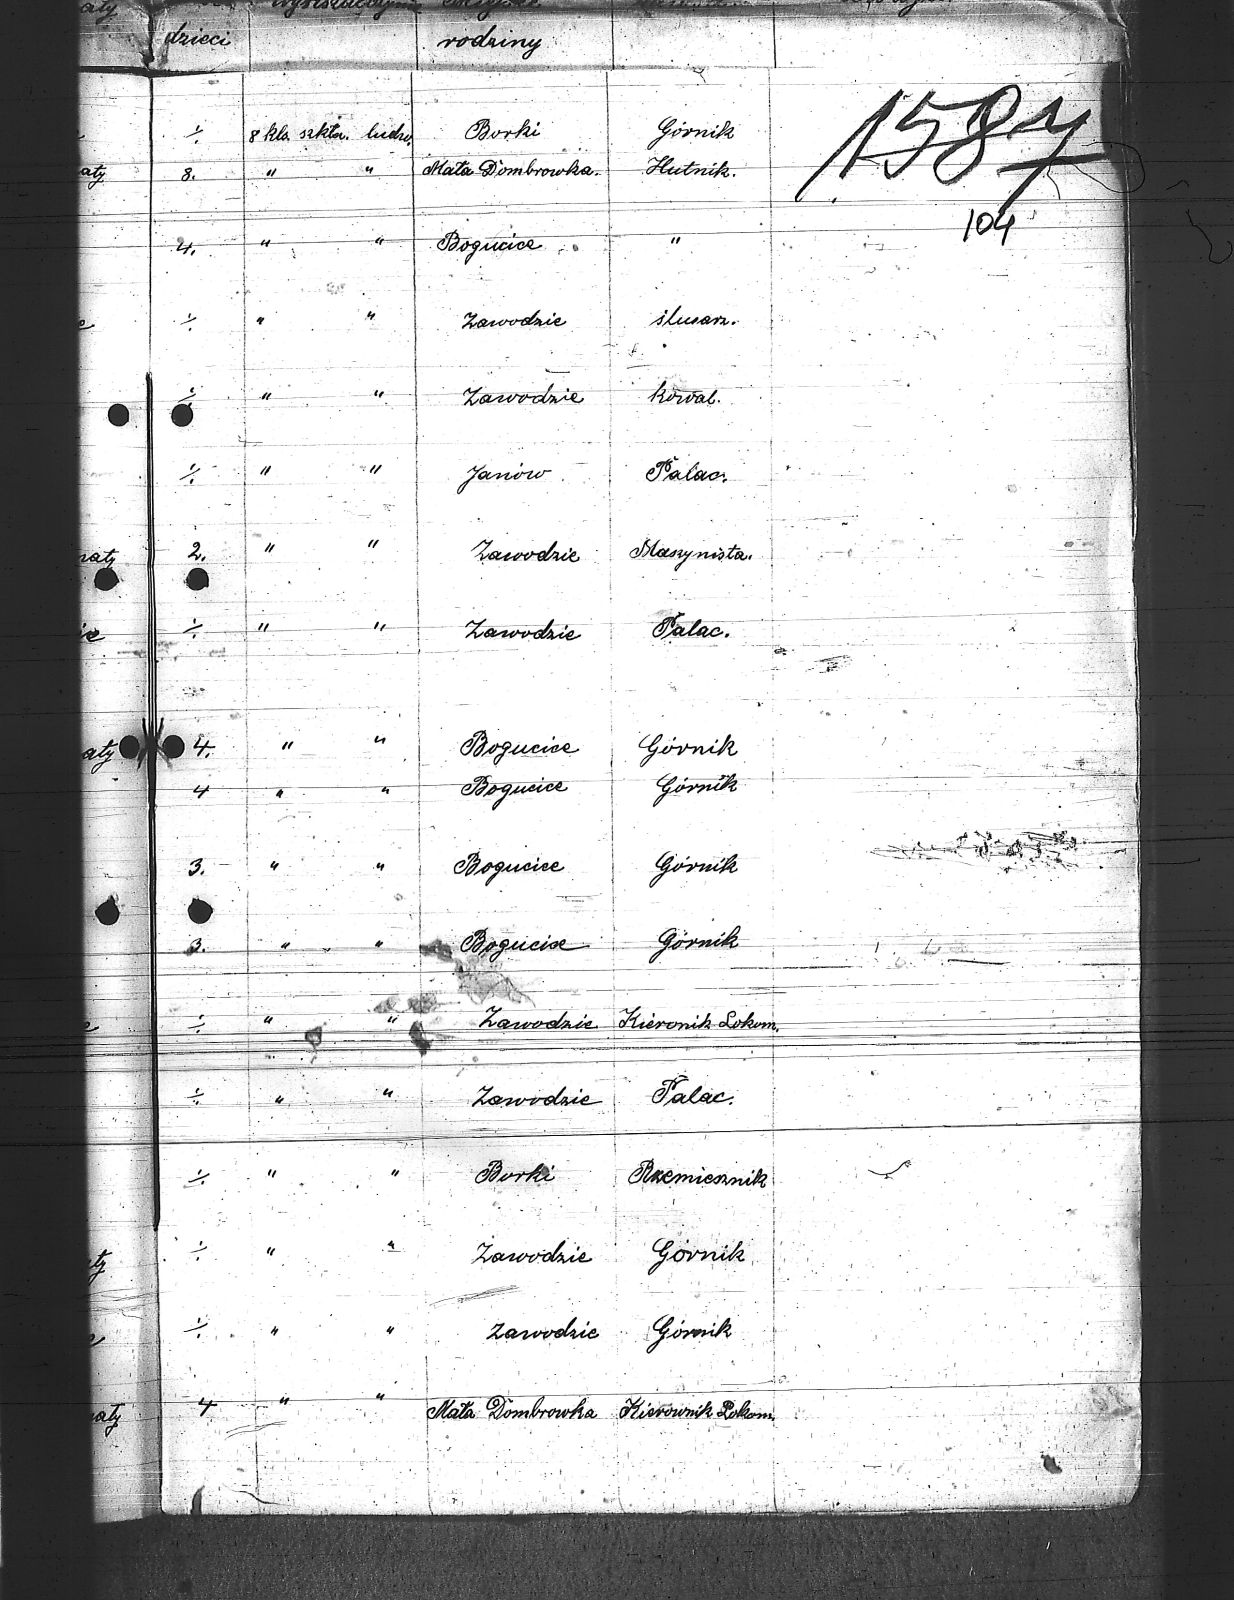 dzieci rodziny
1587
÷ 8 kla. szkła. ludw. Borki Górnik
aty 8. " " Mała Dombrowka. Hutnik.
104
4. " " Bogucice "
÷ " " Zawodzie ślusarz.
÷ " " Zawodzie kowal.
÷ " " Janów Palac.
aty 2. " " Zawodzie Maszynista.
ie ÷ " " Zawodzie Palac.
aty 4. " " Bogucice Górnik
4 " " Bogucice Górnik
3. " " Bogucice Górnik
3. " " Bogucice Górnik
÷ " " Zawodzie Kieronik Lokom.
÷ " " Zawodzie Palac.
÷ " " Borki Rzemiesznik
ty ÷ " " Zawodzie Górnik
÷ " " Zawodzie Górnik
aty 4 " " Mała Dombrowka Kierownik Lokom.